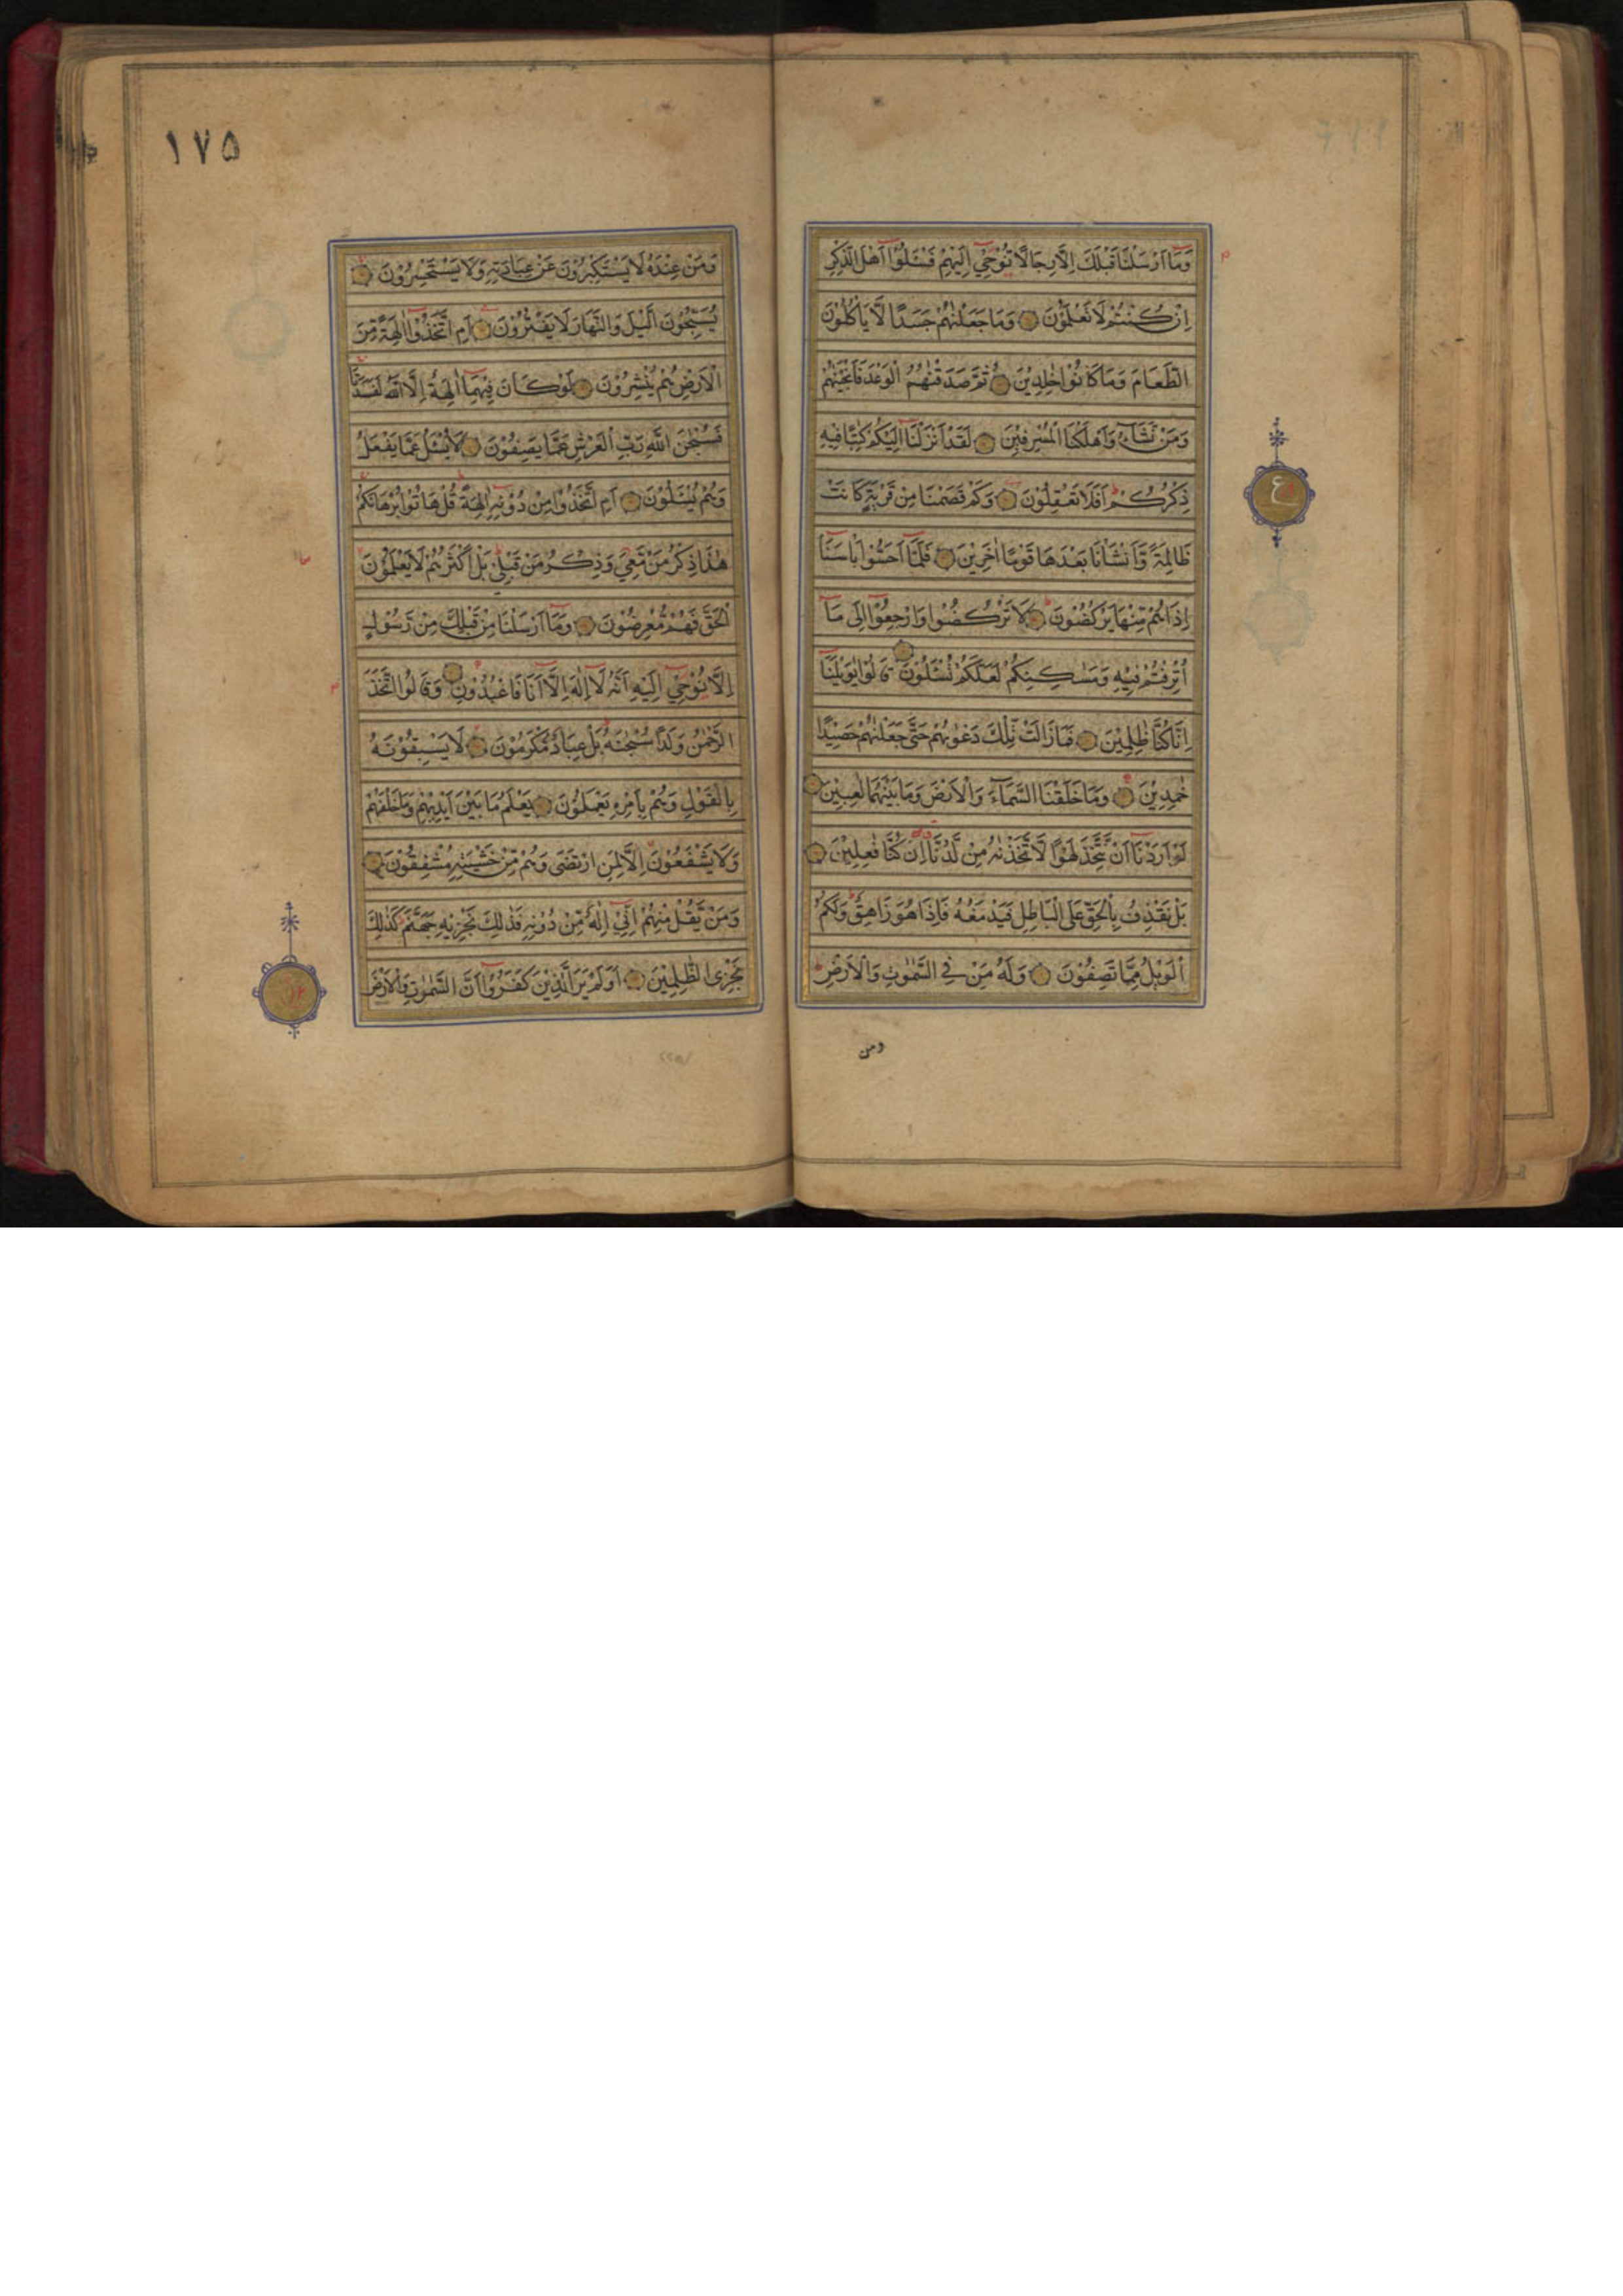 وَمَآ اَرْسَلْنَا قَبْلَكَ اِلَّا رِجَالًا نُوْحِيْٓ اِلَيْهِمْ فَسْـَٔلُوْٓا اَهْلَ الذِّكْرِ
اِنْ كُنْتُمْ لَا تَعْلَمُوْنَ وَمَا جَعَلْنٰهُمْ جَسَدًا لَّا يَاْكُلُوْنَ
الطَّعَامَ وَمَا كَانُوْا خٰلِدِيْنَ ثُمَّ صَدَقْنٰهُمُ الْوَعْدَ فَاَنْجَيْنٰهُمْ
وَمَنْ نَّشَآءُ وَاَهْلَكْنَا الْمُسْرِفِيْنَ لَقَدْ اَنْزَلْنَآ اِلَيْكُمْ كِتٰبًا فِيْهِ
ذِكْرُكُمْ اَفَلَا تَعْقِلُوْنَ وَكَمْ قَصَمْنَا مِنْ قَرْيَةٍ كَانَتْ
ظَالِمَةً وَّاَنْشَاْنَا بَعْدَهَا قَوْمًا اٰخَرِيْنَ فَلَمَّآ اَحَسُّوْا بَاْسَنَآ
اِذَا هُمْ مِّنْهَا يَرْكُضُوْنَ لَا تَرْكُضُوْا وَارْجِعُوْٓا اِلٰى مَآ
اُتْرِفْتُمْ فِيْهِ وَمَسٰكِنِكُمْ لَعَلَّكُمْ تُسْـَٔلُوْنَ قَالُوْا يٰوَيْلَنَآ
اِنَّا كُنَّا ظٰلِمِيْنَ فَمَا زَالَتْ تِّلْكَ دَعْوٰىهُمْ حَتّٰى جَعَلْنٰهُمْ حَصِيْدًا
خٰمِدِيْنَ وَمَا خَلَقْنَا السَّمَآءَ وَالْاَرْضَ وَمَا بَيْنَهُمَا لٰعِبِيْنَ
لَوْ اَرَدْنَآ اَنْ نَّتَّخِذَ لَهْوًا لَّاتَّخَذْنٰهُ مِنْ لَّدُنَّآ اِنْ كُنَّا فٰعِلِيْنَ
بَلْ نَقْذِفُ بِالْحَقِّ عَلَى الْبَاطِلِ فَيَدْمَغُهٗ فَاِذَا هُوَ زَاهِقٌ وَلَكُمُ
الْوَيْلُ مِمَّا تَصِفُوْنَ وَلَهٗ مَنْ فِى السَّمٰوٰتِ وَالْاَرْضِ
ومن
ع
١٧٥
وَمَنْ عِنْدَهٗ لَا يَسْتَكْبِرُوْنَ عَنْ عِبَادَتِهٖ وَلَا يَسْتَحْسِرُوْنَ
يُسَبِّحُوْنَ الَّيْلَ وَالنَّهَارَ لَا يَفْتُرُوْنَ اَمِ اتَّخَذُوْٓا اٰلِهَةً مِّنَ
الْاَرْضِ هُمْ يُنْشِرُوْنَ لَوْ كَانَ فِيْهِمَآ اٰلِهَةٌ اِلَّا اللّٰهُ لَفَسَدَتَا
فَسُبْحٰنَ اللّٰهِ رَبِّ الْعَرْشِ عَمَّا يَصِفُوْنَ لَا يُسْـَٔلُ عَمَّا يَفْعَلُ
وَهُمْ يُسْـَٔلُوْنَ اَمِ اتَّخَذُوْا مِنْ دُوْنِهٖٓ اٰلِهَةً قُلْ هَاتُوْا بُرْهَانَكُمْ
هٰذَا ذِكْرُ مَنْ مَّعِيَ وَذِكْرُ مَنْ قَبْلِيْ بَلْ اَكْثَرُهُمْ لَا يَعْلَمُوْنَ
الْحَقَّ فَهُمْ مُّعْرِضُوْنَ وَمَآ اَرْسَلْنَا مِنْ قَبْلِكَ مِنْ رَّسُوْلٍ
اِلَّا نُوْحِيْٓ اِلَيْهِ اَنَّهٗ لَآ اِلٰهَ اِلَّآ اَنَا فَاعْبُدُوْنِ وَقَالُوا اتَّخَذَ
الرَّحْمٰنُ وَلَدًا سُبْحٰنَهٗ بَلْ عِبَادٌ مُّكْرَمُوْنَ لَا يَسْبِقُوْنَهٗ
بِالْقَوْلِ وَهُمْ بِاَمْرِهٖ يَعْمَلُوْنَ يَعْلَمُ مَا بَيْنَ اَيْدِيْهِمْ وَمَا خَلْفَهُمْ
وَلَا يَشْفَعُوْنَ اِلَّا لِمَنِ ارْتَضٰى وَهُمْ مِّنْ خَشْيَتِهٖ مُشْفِقُوْنَ
وَمَنْ يَّقُلْ مِنْهُمْ اِنِّيْٓ اِلٰهٌ مِّنْ دُوْنِهٖ فَذٰلِكَ نَجْزِيْهِ جَهَنَّمَ كَذٰلِكَ
نَجْزِى الظّٰلِمِيْنَ اَوَلَمْ يَرَ الَّذِيْنَ كَفَرُوْٓا اَنَّ السَّمٰوٰتِ وَالْاَرْضَ